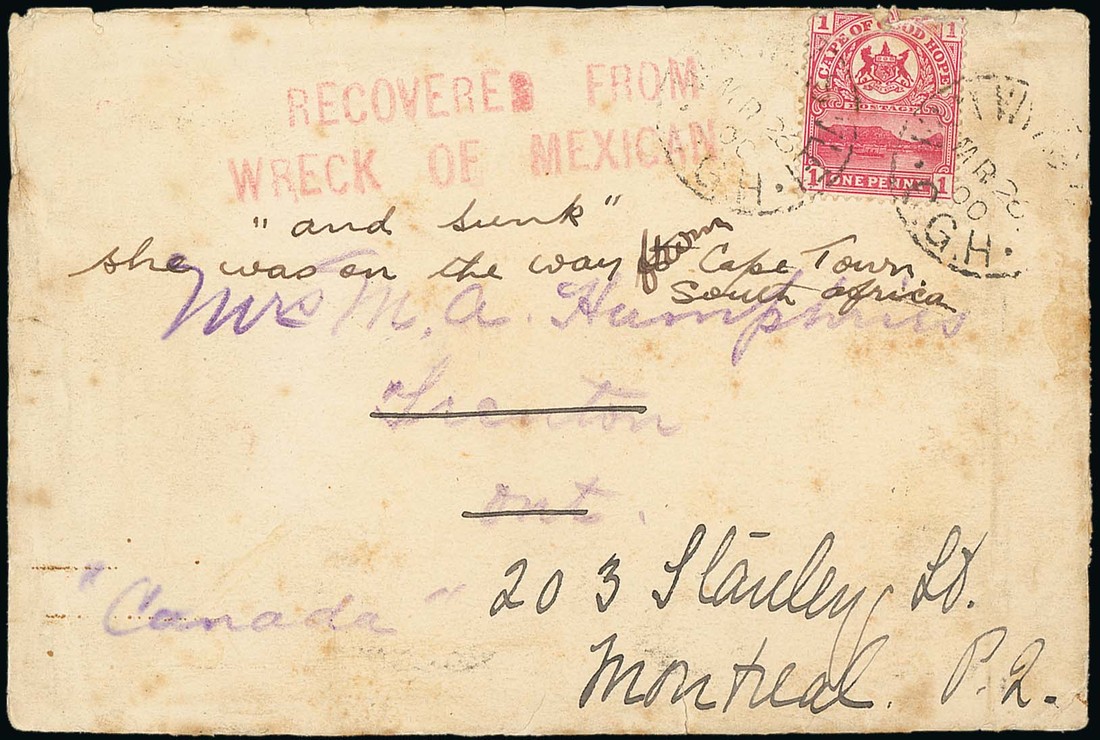 1 1
CAPE OF GOOD HOPE
POSTAGE
ONE PENNY
1 1
RECOVERED FROM
WRECK OF MEXICAN
MR 26
00
G.H.
MR 26
00
G.H.
"and sunk"
she was on the way from Cape Town
South Africa
Mrs M. A. Humphries
Trenton
Ont.
"Canada"
203 Stanley St.
Montreal P.Q.